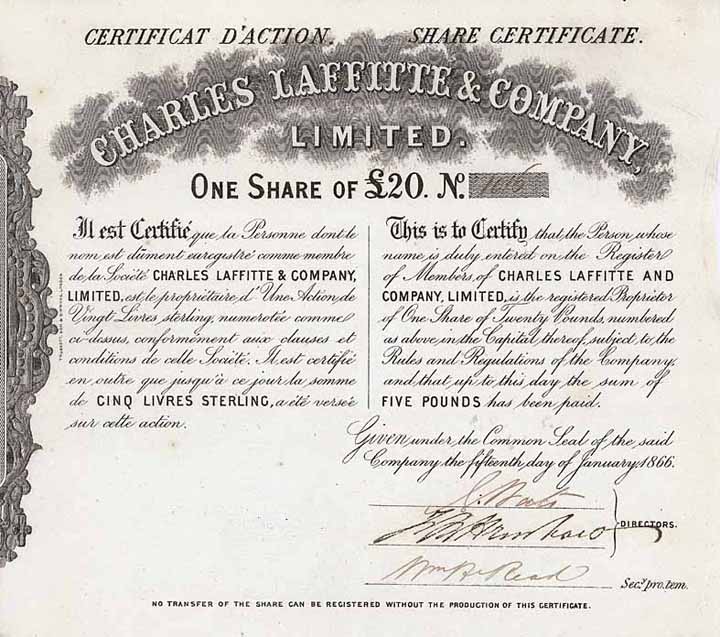 CERTIFICAT D'ACTION. SHARE CERTIFICATE.
CHARLES LAFFITTE & COMPANY,
LIMITED.
ONE SHARE OF £20. No.
Il est Certifié que la Personne dont le
nom est dûment enregistré comme membre
de la Société CHARLES LAFFITTE & COMPANY,
LIMITED, est le propriétaire d'Une Action de
Vingt Livres sterling, numerotée comme
ci-dessus, conformément aux clauses et
conditions de celle Société. Il est certifié
en outre que jusqu'à ce jour la somme
de CINQ LIVRES STERLING, a été versée
sur cette action.
This is to Certify that the Person whose
name is duly entered on the Register
of Members, of CHARLES LAFFITTE AND
COMPANY, LIMITED, is the registered Proprietor
of One Share of Twenty Pounds, numbered
as above in the Capital thereof, subject to the
Rules and Regulations of the Company,
and that up to this day the sum of
FIVE POUNDS has been paid.
Given under the Common Seal of the said
Company the fifteenth day of January, 1866.
DIRECTORS.
Wm H. Read
Secy. pro. tem.
NO TRANSFER OF THE SHARE CAN BE REGISTERED WITHOUT THE PRODUCTION OF THIS CERTIFICATE.